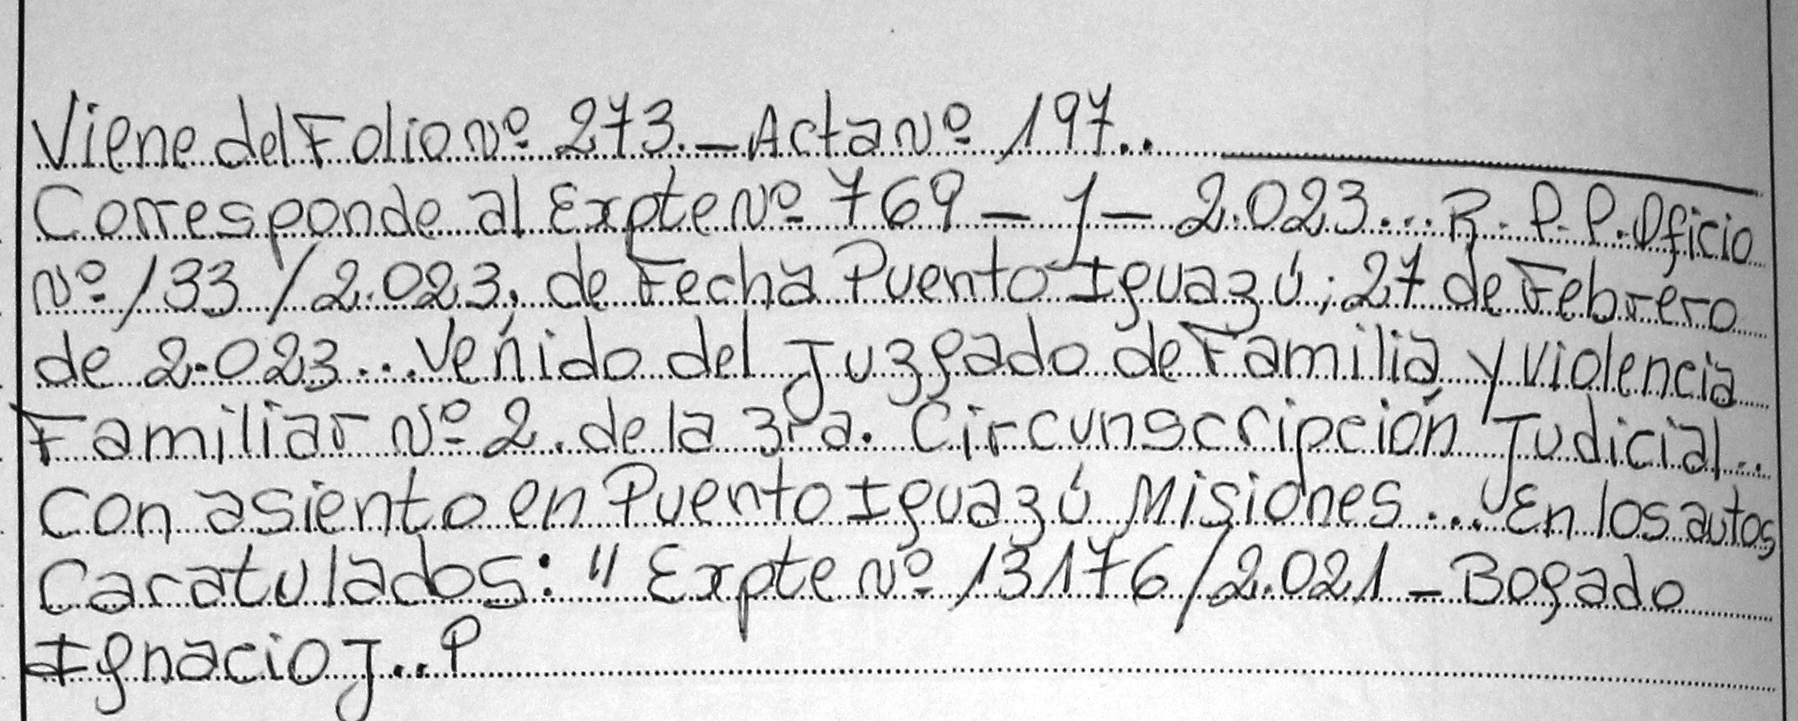 Viene del Folio Nº 273.- Acta Nº 197..
Corresponde al Expte Nº 769-1-2.023... R.P.P. Oficio
Nº 133/2.023, de Fecha Puento Iguazú; 27 de Febrero
de 2.023... Venido del Juzgado de Familia y Violencia
Familiar Nº 2. de la 3ra. Circunscripción Judicial..
con asiento en Puento Iguazú Misiones... En los autos
Caratulados: " Expte Nº 13176/2.021 - Bogado
Ignacio J.. P